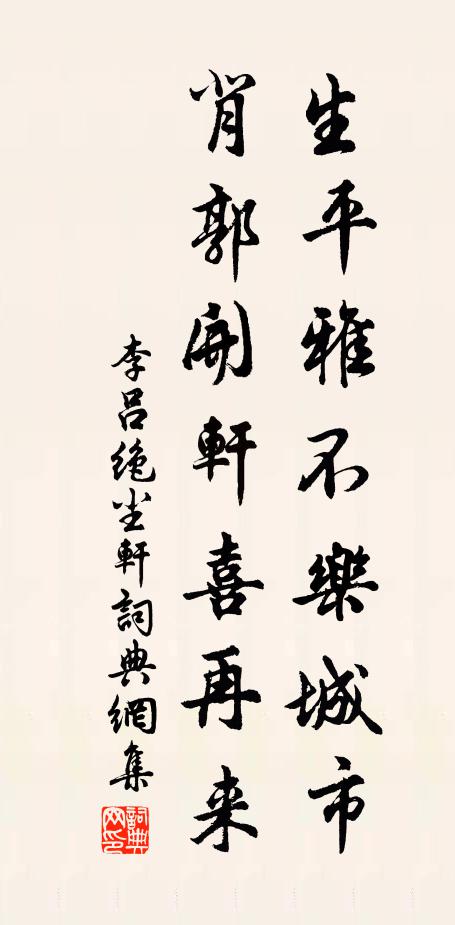 生平雅不樂城市
背郭開軒喜再来
李吕絶尘軒詞典網集
詞典网印